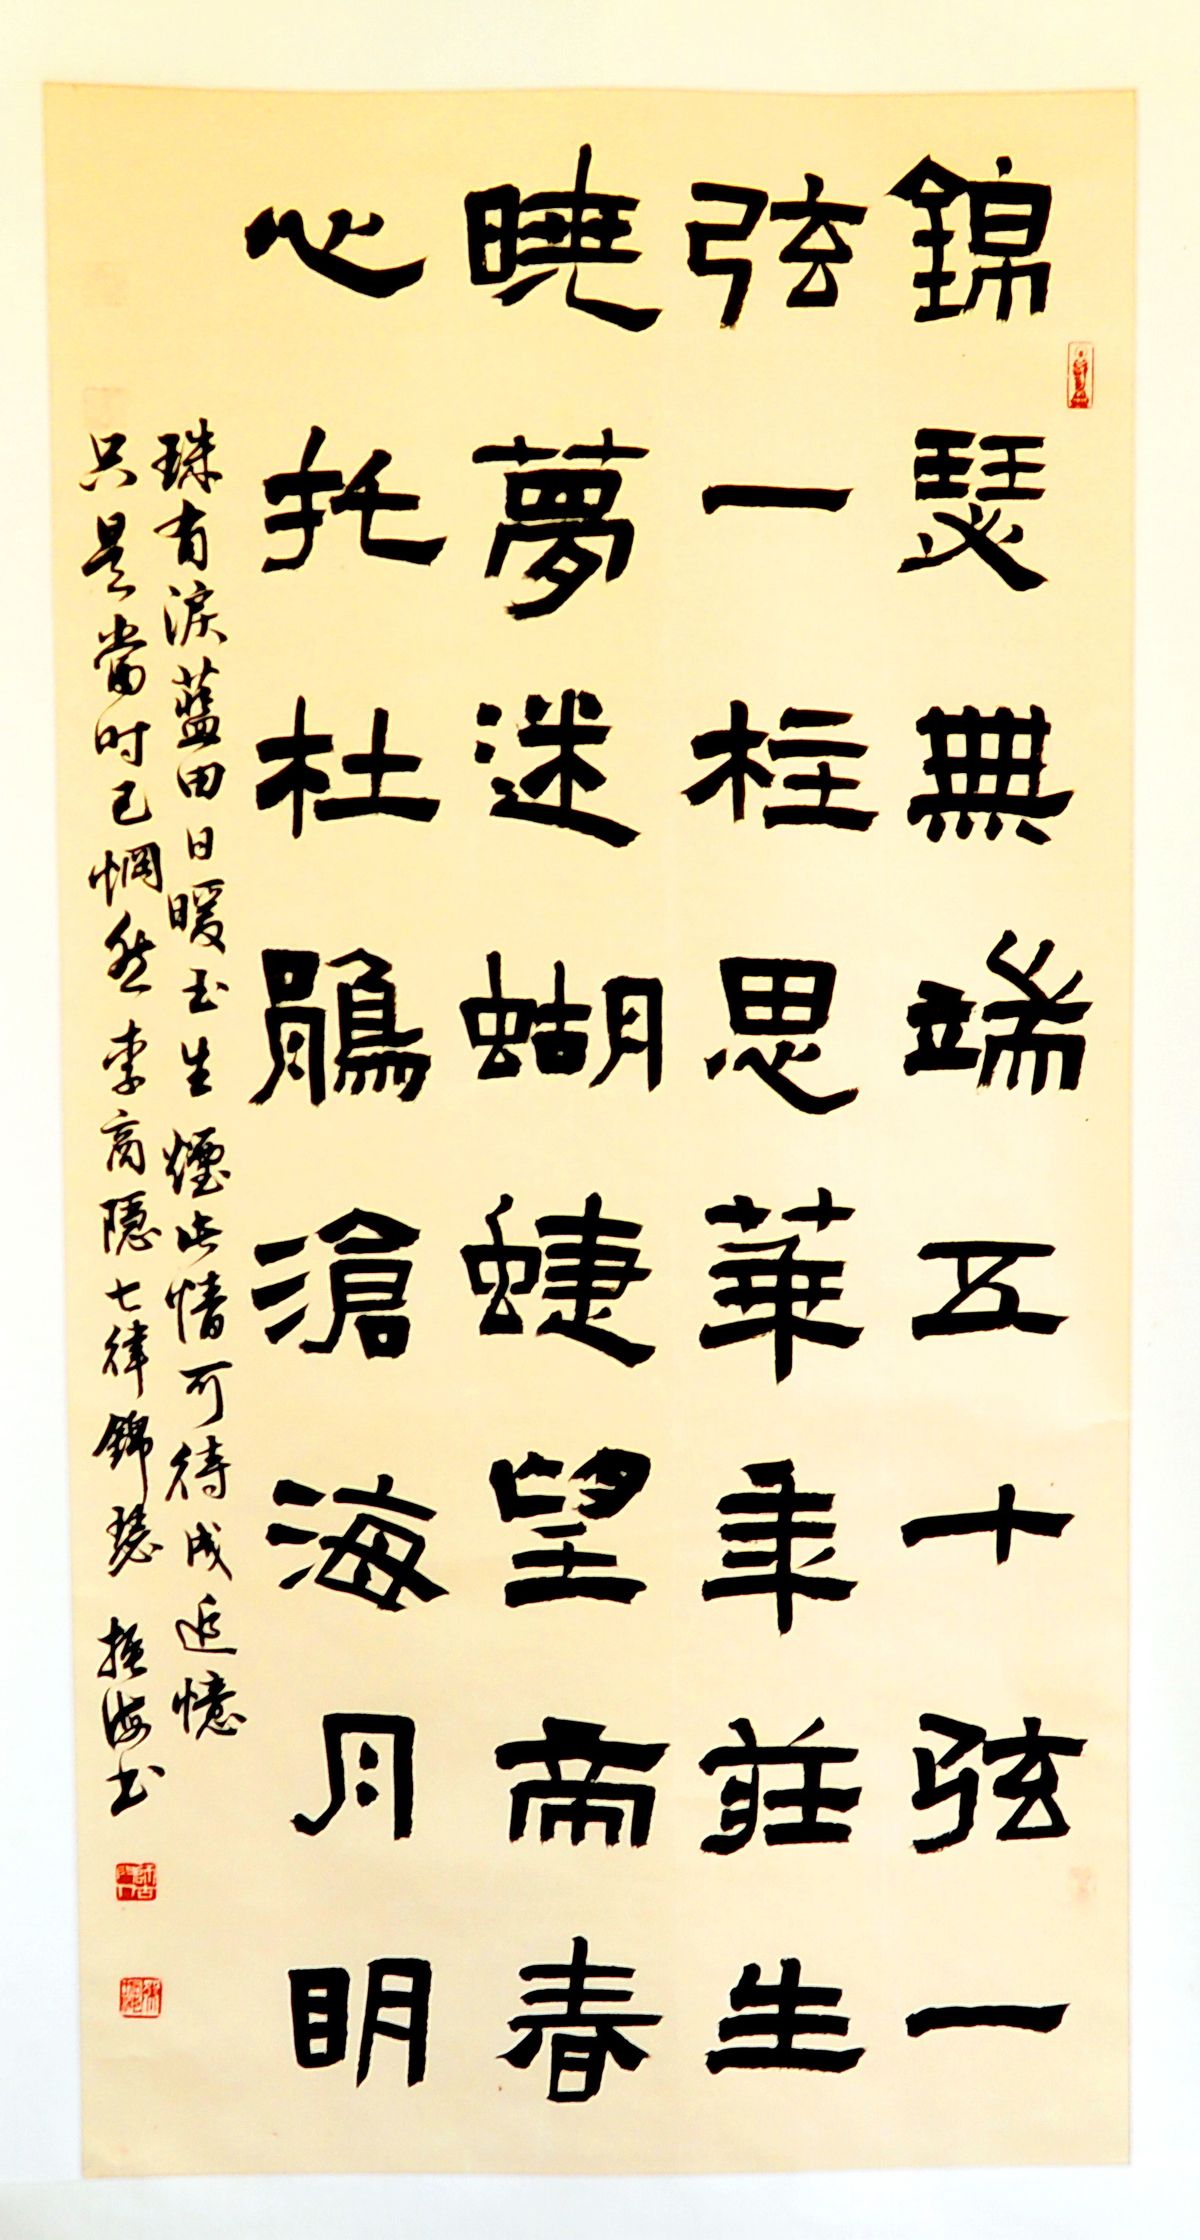 錦瑟無端五十弦一
弦一柱思華年莊生
曉夢迷蝴蜨望帝春
心托杜鵑滄海月明
珠有淚藍田日暖玉生煙此情可待成追憶
只是當时已惘然 李商隐七律錦瑟 振海书